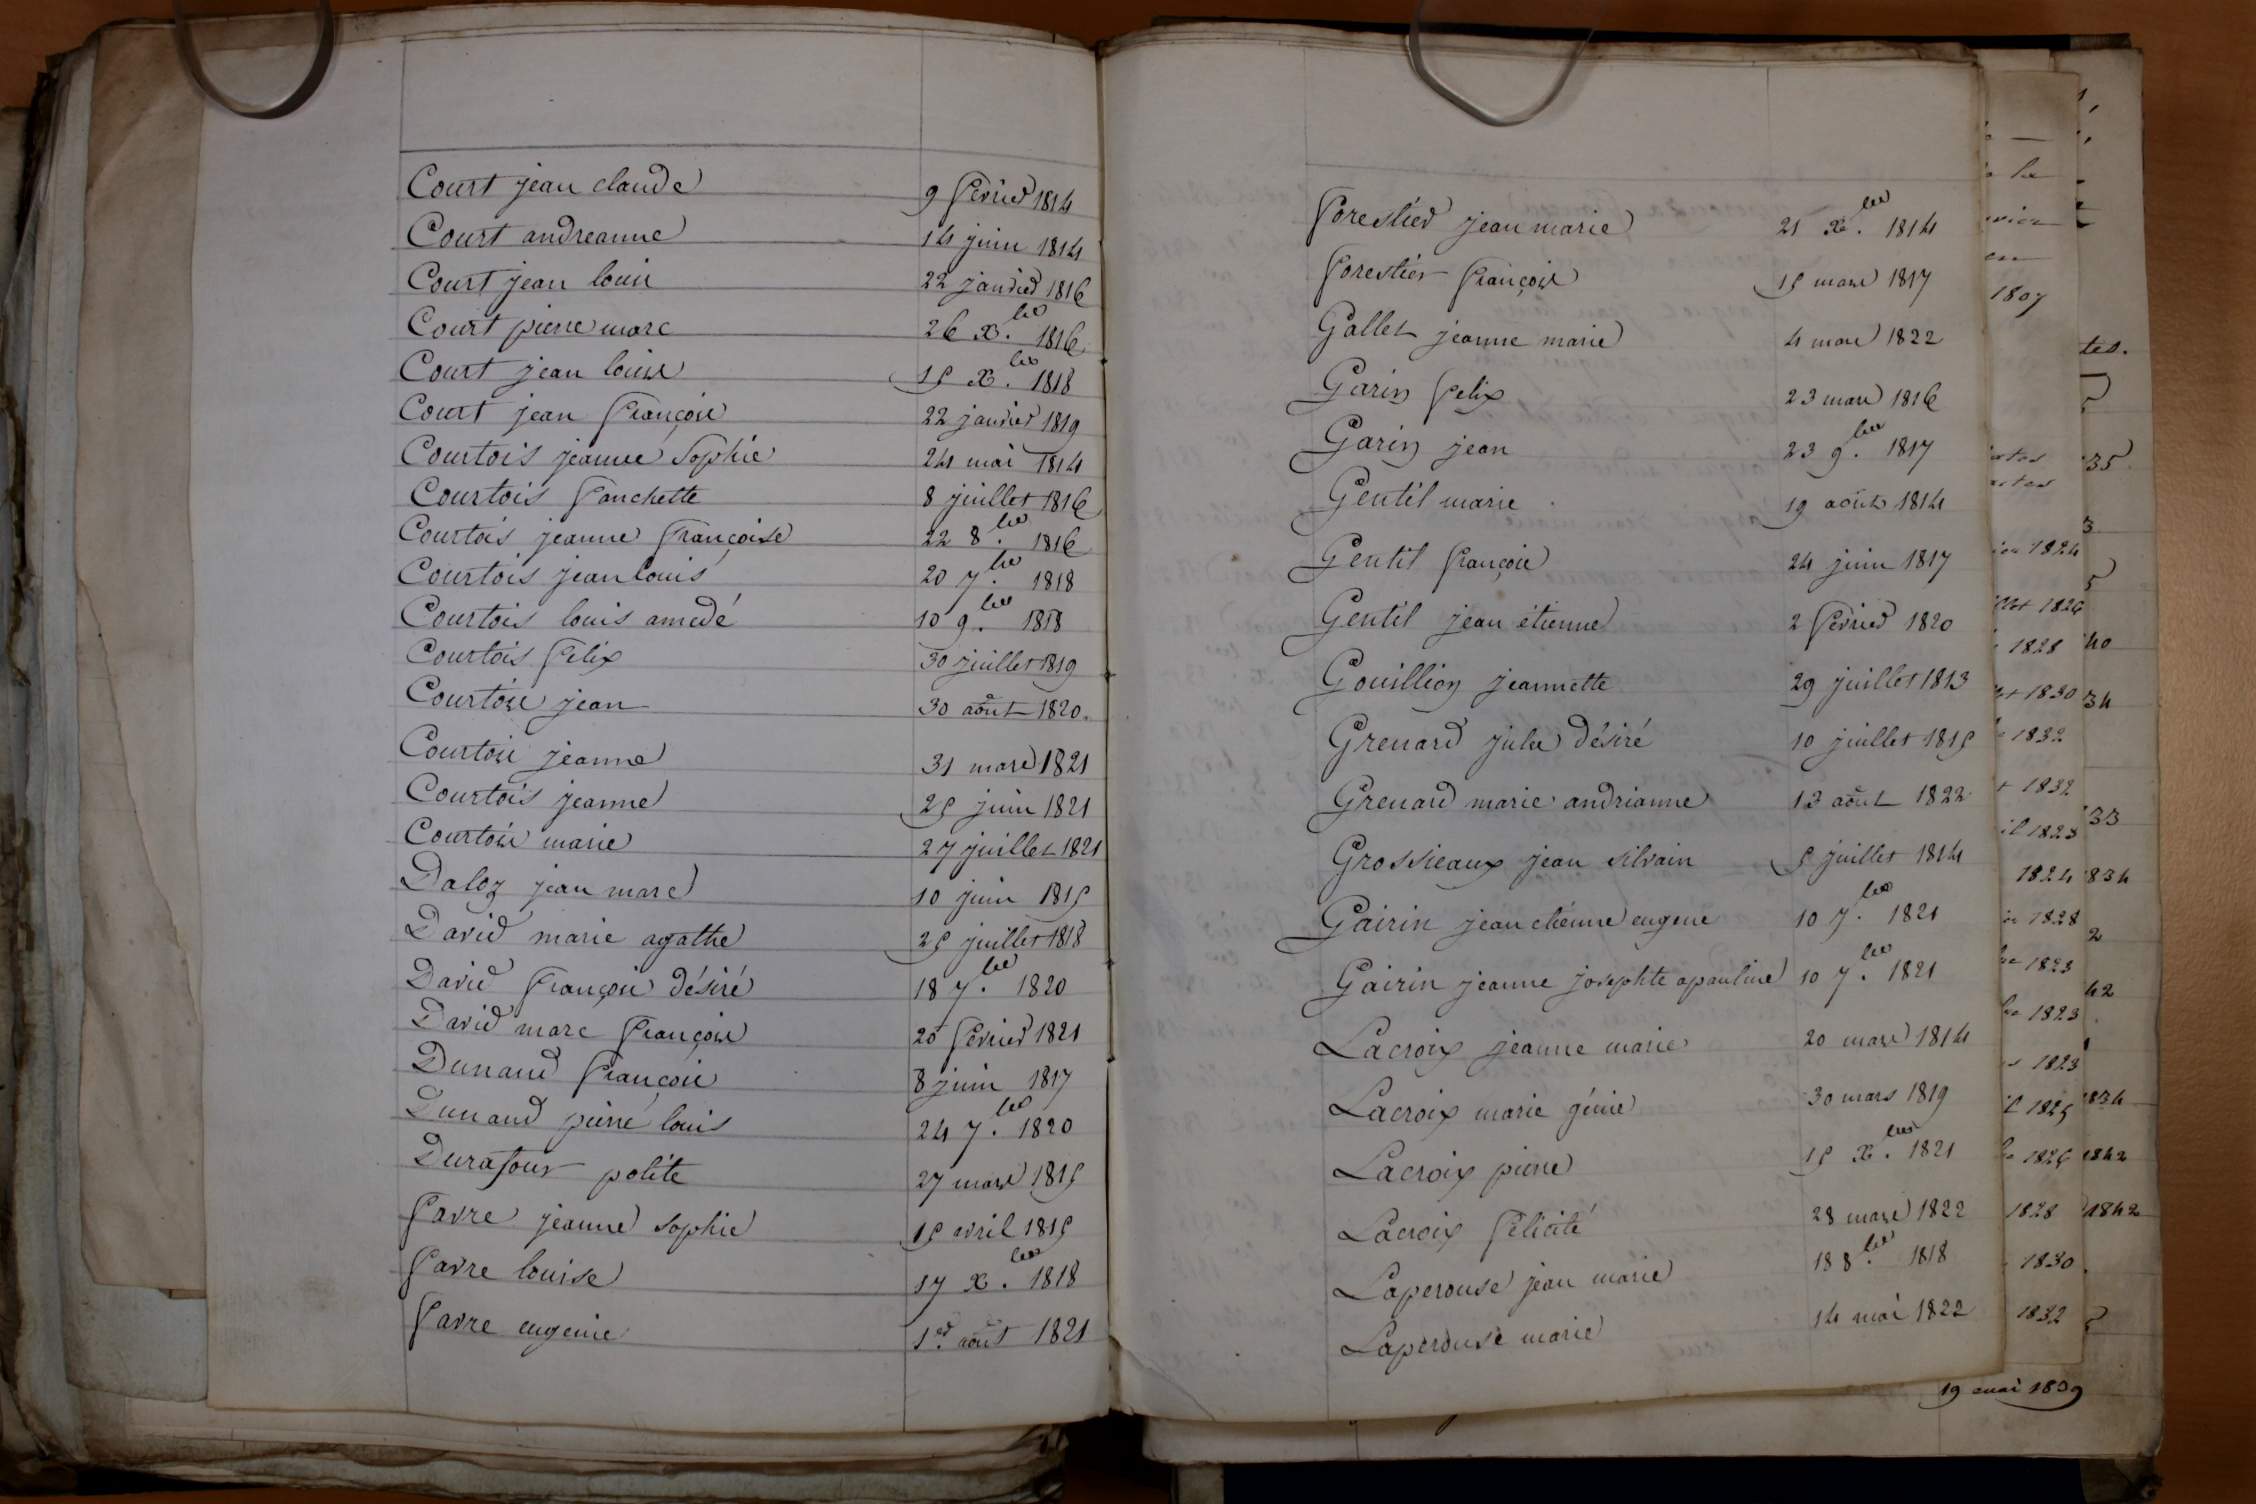 Court jean claude 9 fevrier 1814
Court andreanne 14 juin 1814
Court jean louis 22 janvier 1816
Court pierre marc 26 X.bre 1816
Court jean louis 15 X.bre 1818
Court jean françois 22 janvier 1819
Courtois jeanne Sophie 24 mai 1814
Courtois fanchette 8 juillet 1816
Courtois jeanne françoise 22 8.bre 1816
Courtois jean louis 20 7.bre 1818
Courtois louis amedé 10 9.bre 1818
Courtois felix 30 juillet 1819
Courtois jean 30 août 1820.
Courtois jeanne 31 mars 1821
Courtois jeanne 25 juin 1821
Courtois marie 27 juillet 1821
Daloz jean marc 10 juin 1815
David marie agathe 25 juillet 1818
David françois désiré 18 7.bre 1820
David marc françois 20 fevrier 1821
Dunand françois 8 juin 1817
Dunand pierre louis 24 7.bre 1820
Durafour polite 27 mars 1815
favre jeanne sophie 15 avril 1815
favre louise 17 X.bre 1818
favre eugenie 1.er août 1821
forestier jean marie 21 X.bre 1814
forestier françois 15 mars 1817
Gallet jeanne marie 4 mars 1822
Garin felix 23 mars 1816
Garin jean 23 9.bre 1817
Gentil marie 19 août 1814
Gentil françois 24 juin 1817
Gentil jean étienne 2 fevrier 1820
Gouillion jeannette 29 juillet 1813
Grenard jules désiré 10 juillet 1815
Grenard marie andrianne 13 août 1822
Grossieaux jean silvain 5 juillet 1814
Gairin jean etienne eugene 10 7.bre 1821
Gairin jeanne josephte apauline 10 7.bre 1821
Lacroix jeanne marie 20 mars 1814
Lacroix marie génie 30 mars 1819
Lacroix pierre 15 X.bre 1821
Lacroix felicité 28 mars 1822
Laperouse jean marie 18 8.bre 1818
Laperouse marie 14 mai 1822
1807
1824
1828
1830
1832
1832
1823
1824
1828
1823
1823
1823
1825
1828
1830
1832
1842
19 mai 1839